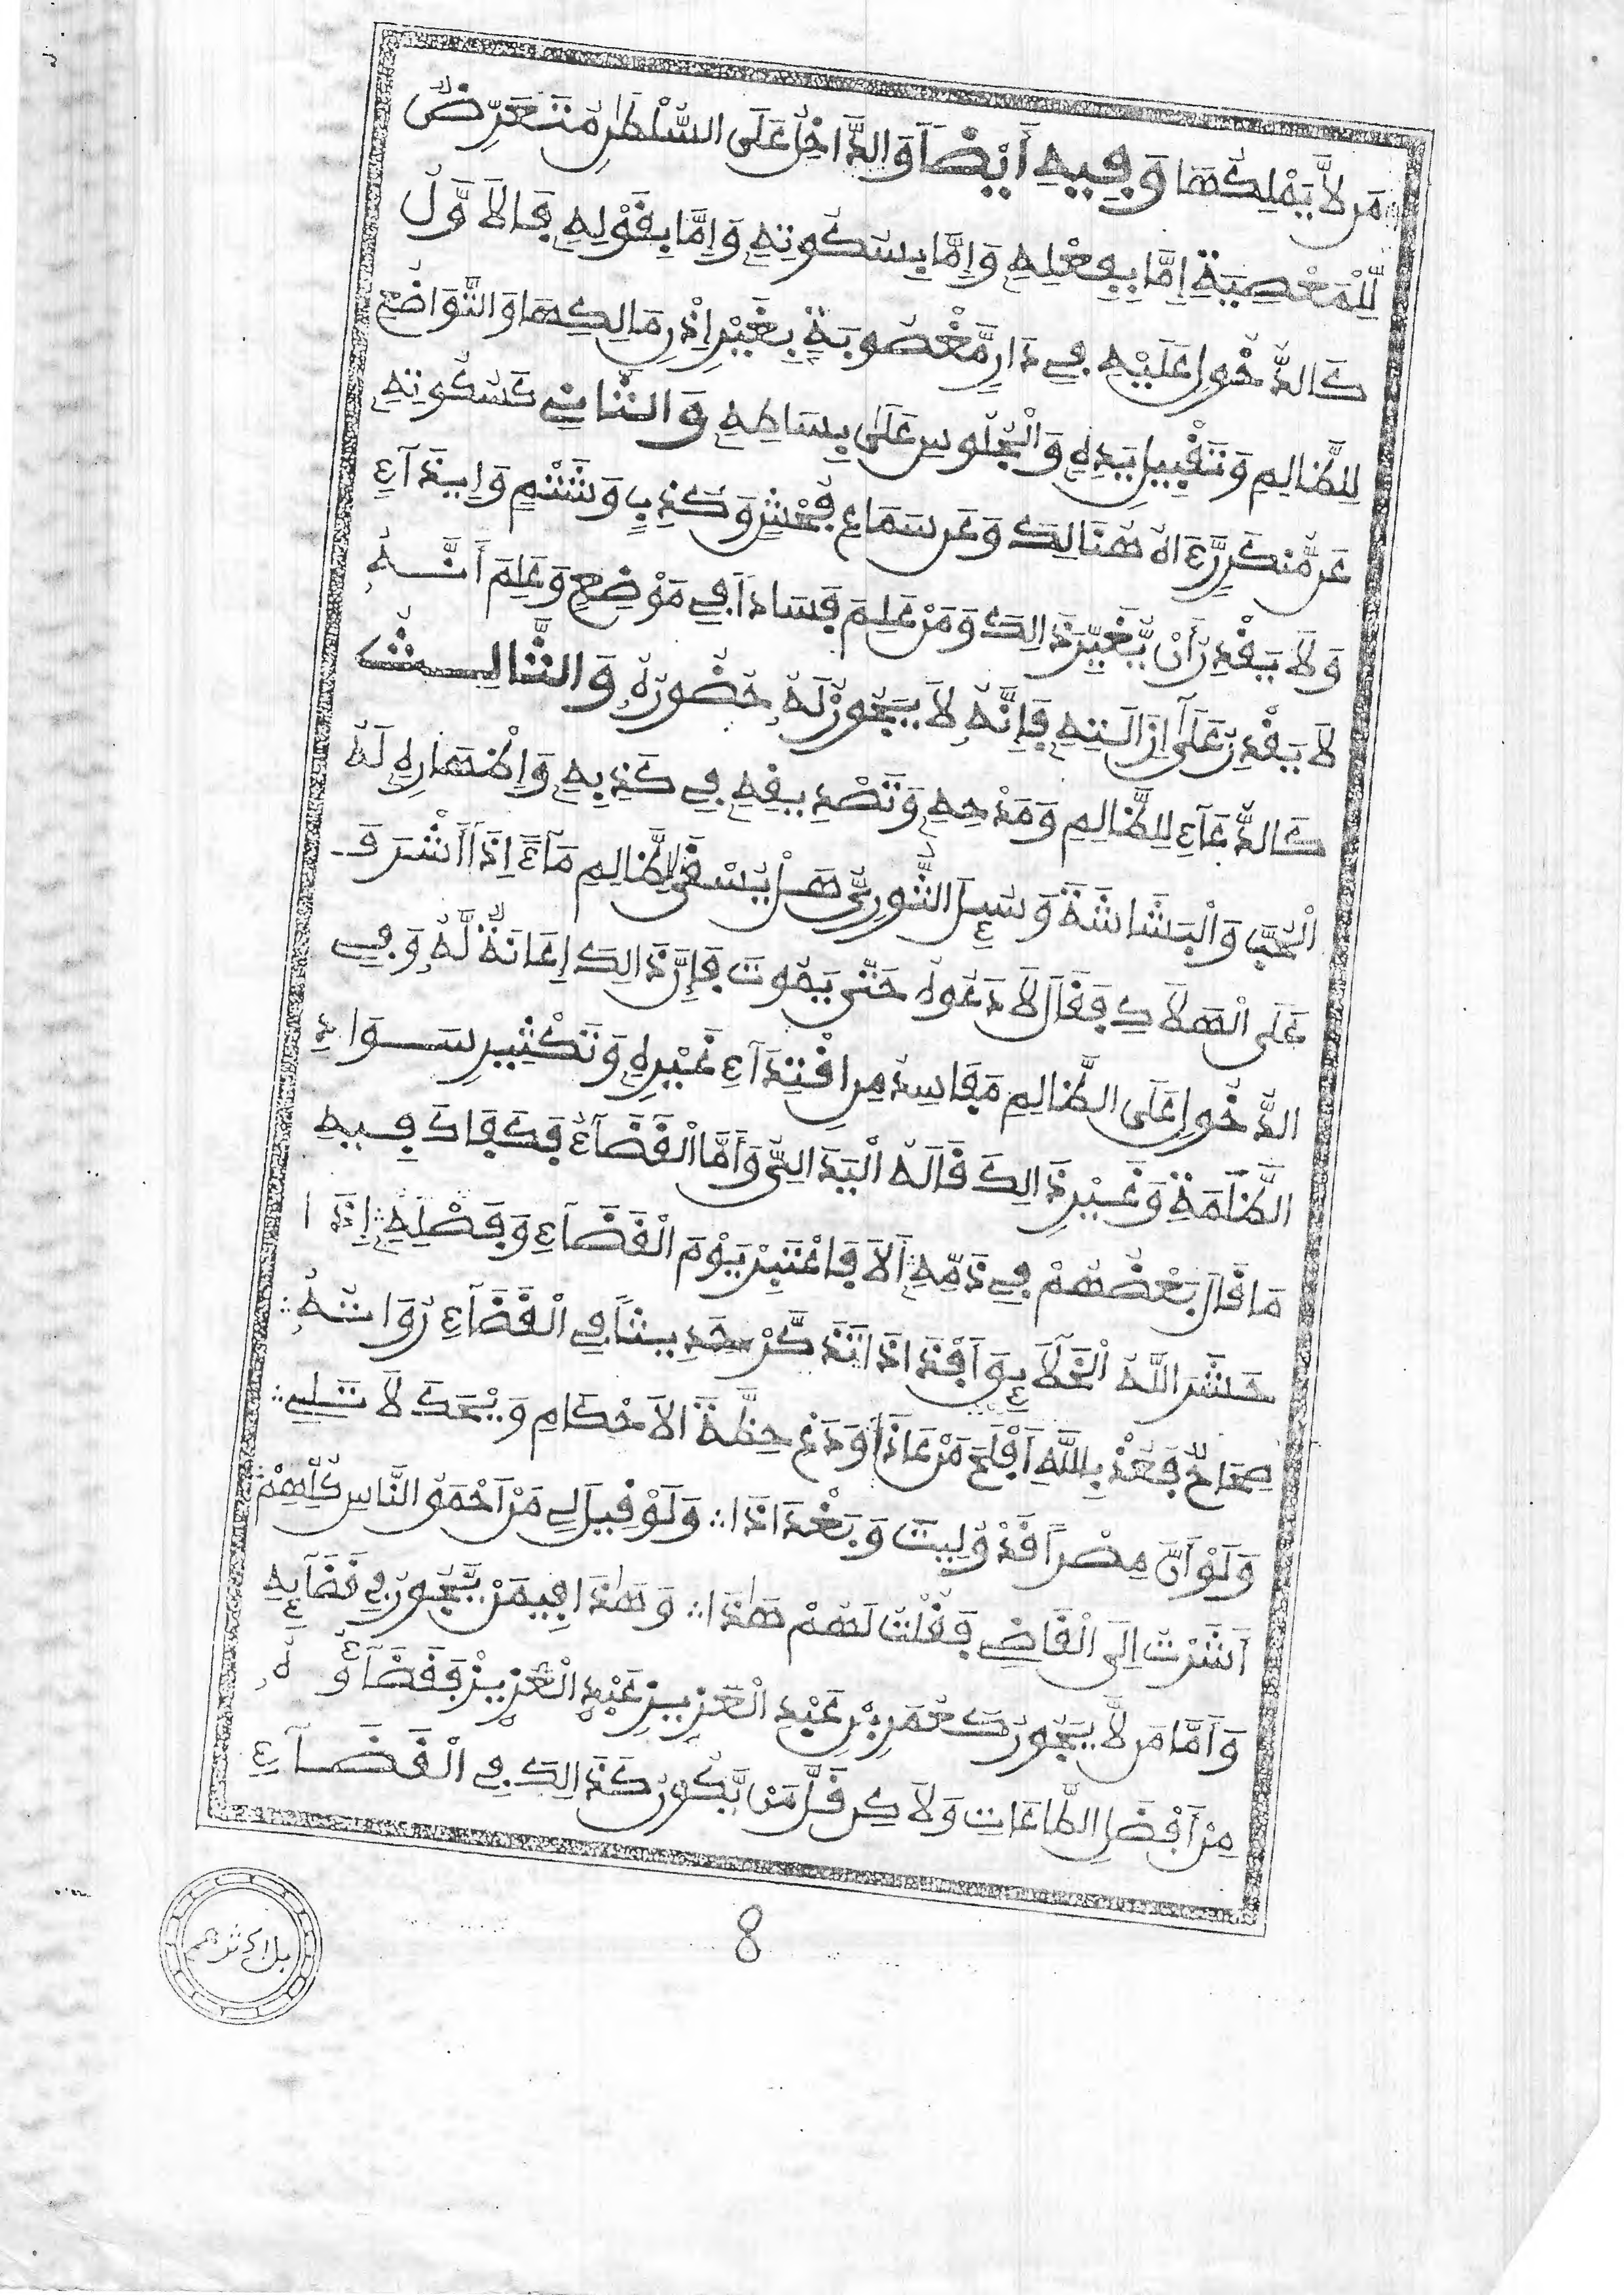 مَن لَّا يَمْلِكُهَا وَفِيهِ أَيْضًا وَالدَّاخِلُ عَلَى السُّلْطَٰنِ مُتَعَرِّضٌ
لِّلْمَعْصِيَةِ إِمَّا بِفِعْلِهِ وَإِمَّا بِسُكُوتِهِ وَإِمَّا بِقَوْلِهِ فَالْأَوَّلُ
كَالدُّخُولِ عَلَيْهِ فِي دَارٍ مَّغْصُوبَةٍ بِغَيْرِ إِذْنِ مَالِكِهَا وَالتَّوَاضُعِ
لِلظَّالِمِ وَتَقْبِيلِ يَدِهِ وَالْجُلُوسِ عَلَىٰ بِسَاطِهِ وَالثَّانِي كَسُكُوتِهِ
عَن مُّنكَرٍ رَّءَاهُ هُنَالِكَ وَعَن سَمَاعِ فُحْشٍ وَكَذِبٍ وَشَتْمٍ وَإِيذَآءٍ
وَلَا يَقْدِرُ أَنْ يُّغَيِّرَ ذَالِكَ وَمَنْ عَلِمَ فَسَادًا فِي مَوْضِعٍ وَعَلِمَ أَنَّهُ
لَا يَقْدِرُ عَلَىٰ إِزَالَتِهِ فَإِنَّهُ لَا يَجُوزُ لَهُ حُضُورُهُ وَالثَّالِثُ
كَالدُّعَآءِ لِلظَّالِمِ وَمَدْحِهِ وَتَصْدِيقِهِ فِي كَذِبِهِ وَإِظْهَارِهِ لَهُ
الْحُبَّ وَالْبَشَاشَةَ وَسُئِلَ الثَّوْرِيُّ هَلْ يُسْقَى الظَّالِمُ مَآءً إِذَا أَشْرَفَ
عَلَى الْهَلَاكِ فَقَالَ لَا دَعُوهُ حَتَّىٰ يَمُوتَ فَإِنَّ ذَالِكَ إِعَانَةٌ لَّهُ وَفِي
الدُّخُولِ عَلَى الظَّالِمِ مَفَاسِدُ مِنِ اقْتِدَآءِ غَيْرِهِ وَتَكْثِيرِ سَوَادِ
الظَّلَمَةِ وَغَيْرِ ذَالِكَ قَالَهُ الْيَدَالِيُّ وَأَمَّا الْقَضَآءُ فَكَفَاكَ فِيهِ
مَا قَالَ بَعْضُهُمْ فِي ذَمِّهِ ؞ أَلَا فَاعْتَبِرْ يَوْمَ الْقَضَآءِ وَفَصْلِهِ ؞ إِذَا
حَشَرَ اللَّهُ الْخَلَآئِقَ أَفْذَاذَا تَذَكَّرْ حَدِيثًا فِي الْقَضَآءِ رُوَاتُهُ ؞
صِحَاحٌ فَعُذْ بِاللَّهِ أَفْلَحَ مَنْ عَاذَا وَدَعْ حِطَّةَ الْأَحْكَامِ وَيْحَكَ لَا تَلِي ؞
وَلَوْ أَنَّ مِصْرًا قَدْ وُلِيتَ وَبَغْدَاذَا ؞ وَلَوْ قِيلَ لِي مَنْ أَحْمَقُ النَّاسِ كُلِّهِمْ ؞
أَشَرْتُ إِلَى الْقَاضِي فَقُلْتُ لَهُمْ هَٰذَا ؞ وَهَٰذَا فِيمَنْ يَّجُورُ فِي قَضَآئِهِ
وَأَمَّا مَن لَّا يَجُورُ كَعُمَرَ بْنِ عَبْدِ الْعَزِيزِ عَبْدِ الْعَزِيزْ فَقَضَآؤُهُ
مِنْ أَفْضَلِ الطَّاعَاتِ وَلَاكِن قَلَّ مَن يَّكُونُ كَذَالِكَ فِي الْقَضَآءِ
8